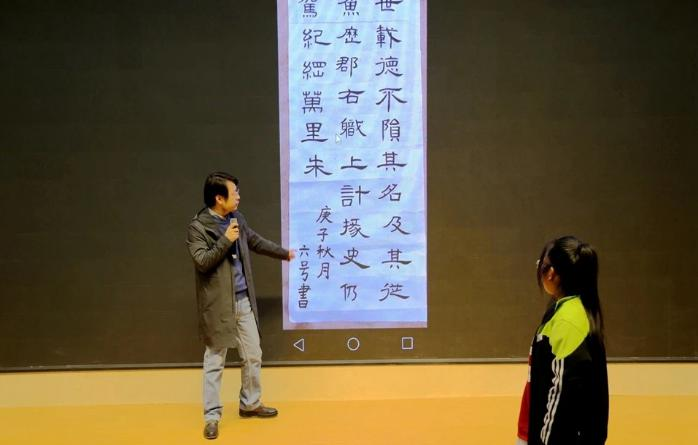 世載德不隕其名及其從
魚歷郡右職上計掾史仍
駕紀綱萬里朱
庚子秋月
六号書